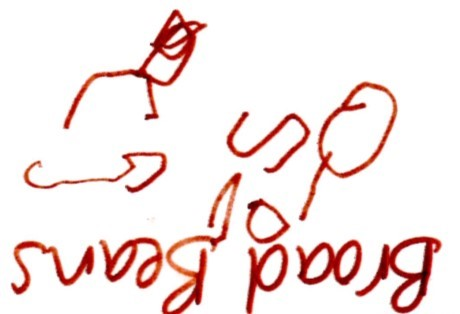 Broad Beans